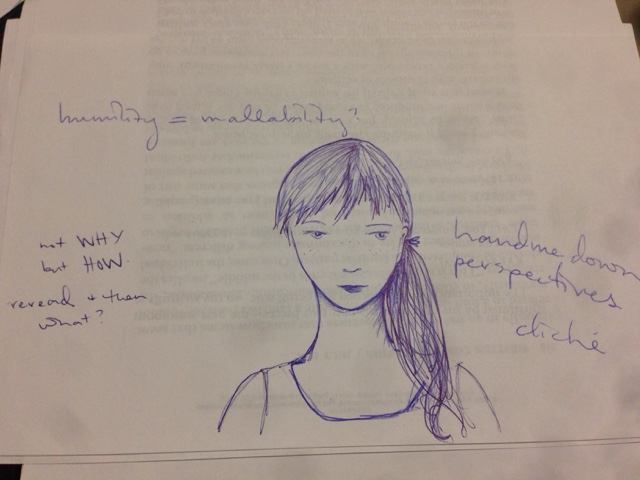 humility = mallability?
not WHY
but HOW.
reread + then
what?
hand me down
perspectives
cliché